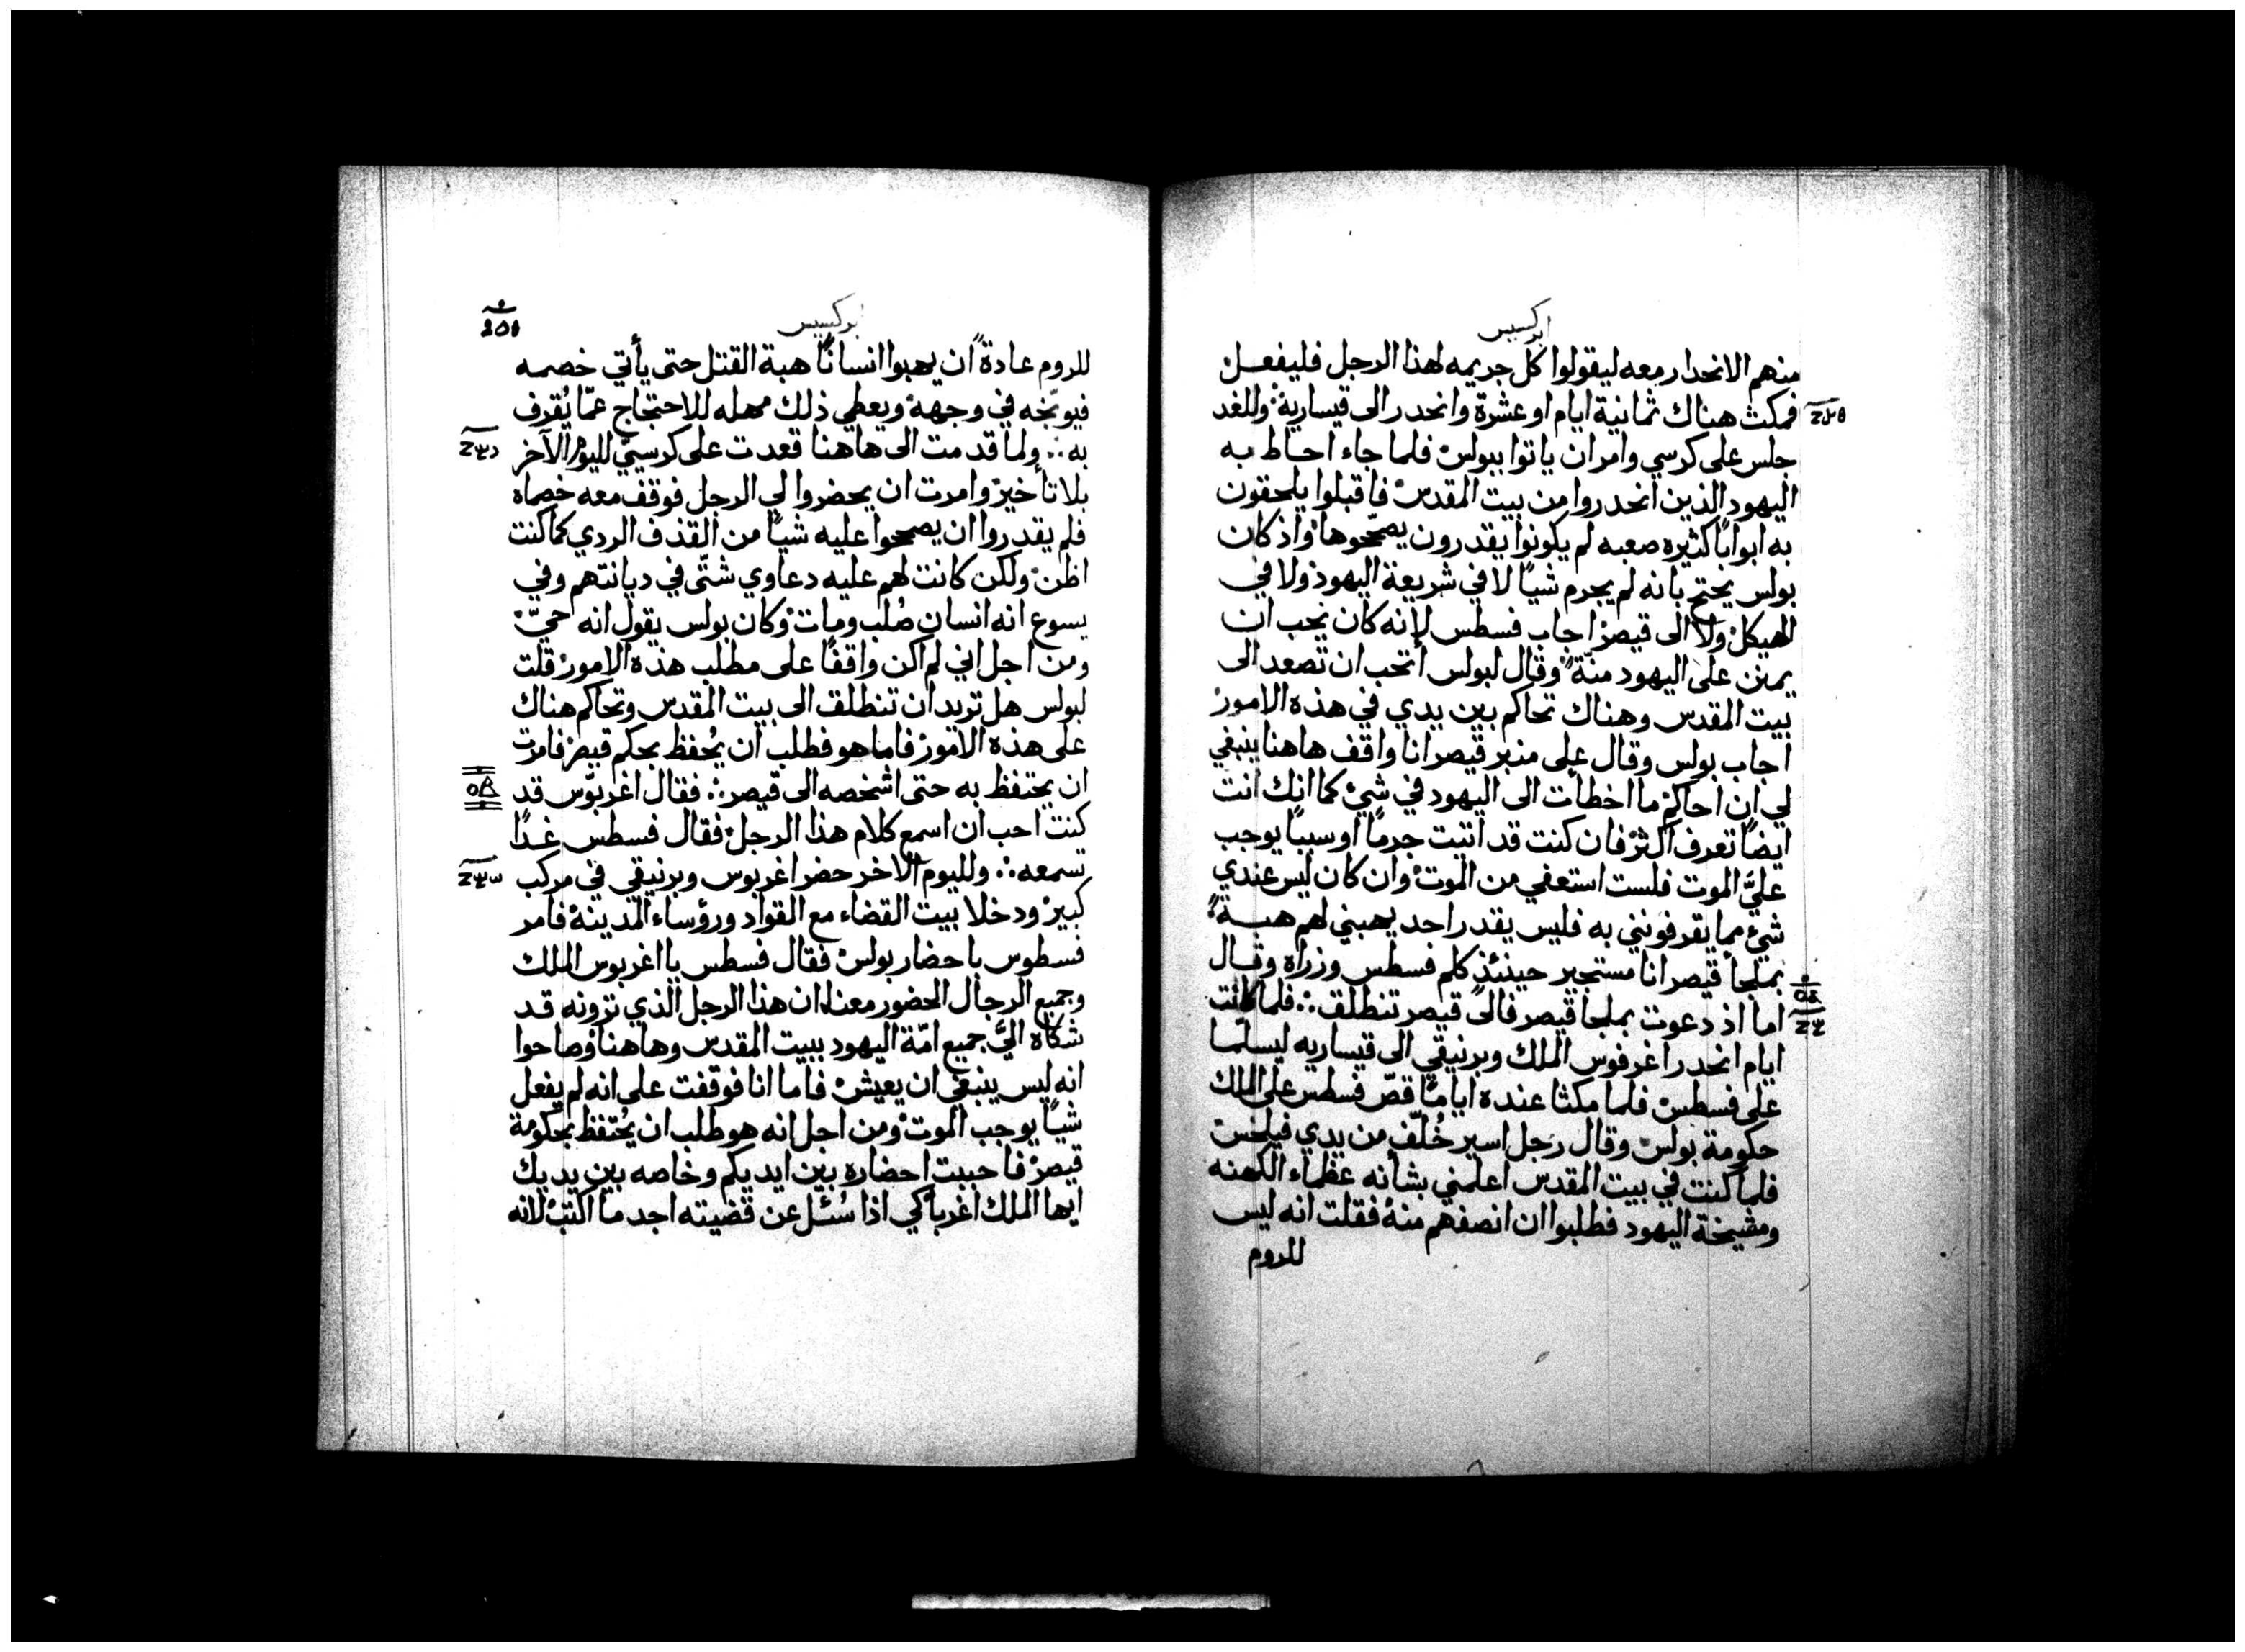 ابركسيس
منهم الانحدار معه ليقولوا كل جريمه لهذا الرجل فليفعل
فمكث هناك ثمانية ايام او عشرة وانحدر الى قيسارية وللغد
جلس على كرسي وامر ان ياتوا ببولس فلما جاء احاط به
اليهود الذين انحدروا من بيت المقدس فاقبلوا يلحقون
به ابوابًا كثيره صعبه لم يكونوا يقدرون يصحّحوها واذ كان
بولس يحتج بانه لم يجرم شيًا لا في شريعة اليهود ولا في
الهيكل ولا الى قيصر اجاب فسطس لانه كان يحب ان
يمتن على اليهود منّةً وقال لبولس اتحب ان تصعد الى
بيت المقدس وهناك تحاكم بين يدي في هذه الامور
اجاب بولس وقال على منبر قيصر انا واقف هاهنا ينبغي
لي ان احاكم ما اخطأت الى اليهود في شيء كما انك انت
ايضًا تعرف اكثر فان كنت قد اتيت جرمًا او سببًا يوجب
عليَّ الموت فلست استعفي من الموت وان كان ليس عندي
شيء مما يقرفونني به فليس يقدر احد يهبني لهم هبةً
بملجأ قيصر انا مستجير حينئذ كلم فسطس وزراه وقال
اما اذ دعوت بملجا قيصر فالى قيصر تنطلق ⁘ فلما كانت
ايام انحدر اغرفوس الملك وبرنيقي الى قيساريه ليسلّما
على فسطس فلما مكثا عنده ايامًا قصّ فسطس على الملك
حكومة بولس وقال رجل اسير خُلّف من يدي فيلخس
فلما كنت في بيت المقدس اعلمني بشأنه عظماء الكهنه
ومشيخة اليهود فطلبوا ان انصفهم منه فقلت انه ليس
للروم
ابركسيس
للروم عادةً ان يهبوا انسانًا هبة القتل حتى يأتي خصمه
فيوبّخه في وجهه ويعطي ذلك مهله للاحتجاج عمّا يُقرف
به ⁘ ولما قدمت الى هاهنا قعدت على كرسيّ لليوم الآخر
بلا تأخير وامرت ان يحضروا لي الرجل فوقف معه خصماه
فلم يقدروا ان يصححوا عليه شيًا من القذف الردي كما كنت
اظن ولكن كانت لهم عليه دعاوي شتّى في ديانتهم وفي
يسوع انه انسان صُلب ومات وكان بولس يقول انه حيّ
ومن اجل اني لم اكن واقفًا على مطلب هذه الامور قلت
لبولس هل تريد ان تنطلق الى بيت المقدس وتحاكم هناك
على هذه الامور فاما هو فطلب ان يُحفظ بحكم قيصر فامرت
ان يحتفظ به حتى اشخصه الى قيصر ⁘ فقال اغربوّس قد
كنت احب ان اسمع كلام هذا الرجل فقال فسطس غدًا
تسمعه ⁘ ولليوم الاخر حضر اغربوس وبرنيقي في مركب
كبير ودخلا بيت القضاء مع القواد ورؤساء المدينة فامر
فسطوس باحضار بولس فقال فسطس يا اغربوس الملك
وجميع الرجال الحضور معنا ان هذا الرجل الذي ترونه قد
شكاه اليَّ جميع امّة اليهود ببيت المقدس وهاهنا وصاحوا
انه ليس ينبغي ان يعيش فاما انا فوقفت على انه لم يفعل
شيًا يوجب الموت ومن اجل انه هو طلب ان يُحتفظ بحكومة
قيصر فاحببت احضاره بين ايديكم وخاصه بين يديك
ايها الملك اغربا كي اذا سُئل عن قضيته اجد ما اكتب لانه